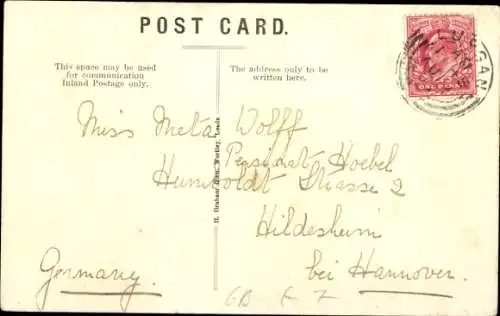 POST CARD.
This space may be used
for communication
Inland Postage only.
The address only to be
written here.
LURGAN
ONE PENNY
Miss Meta Wolff
Pensionat Hoebel
Humboldt Strasse 2
Hildesheim
bei Hannover.
Germany.
H. Graham, Wortley, Leeds
GB